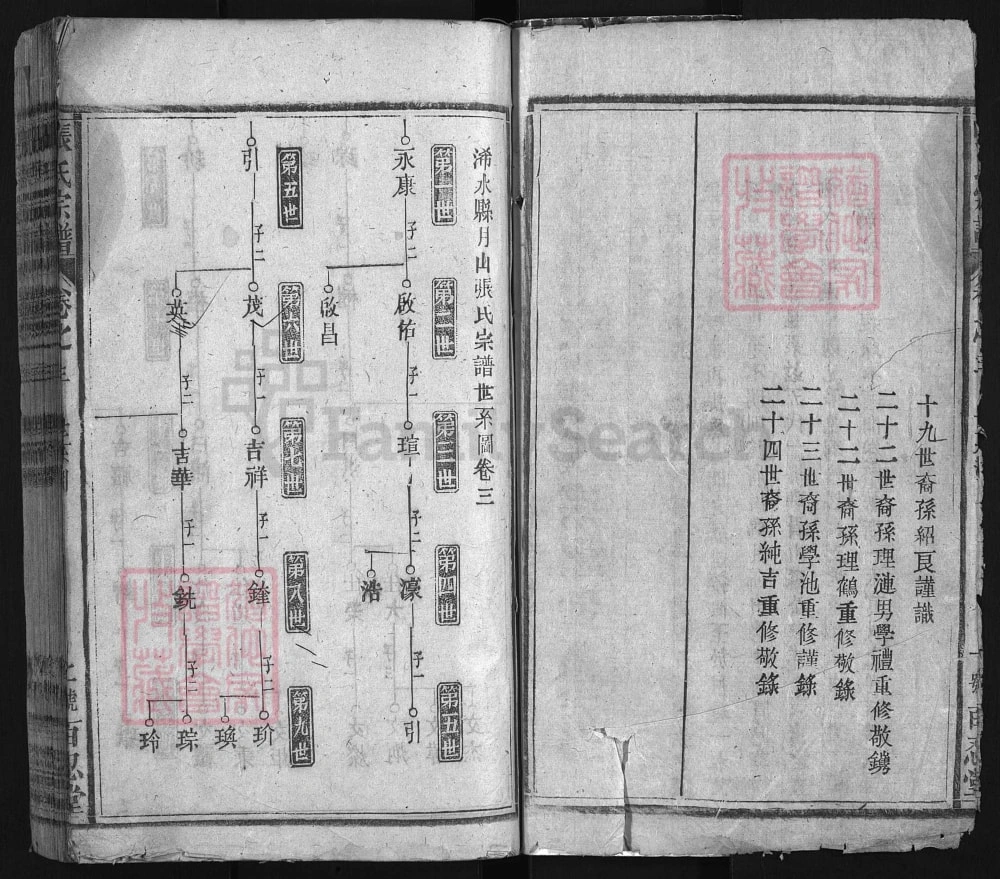 十九世裔孫紹良謹識
二十二世裔孫理漣男學禮重修敬鐫
二十二世裔孫理鶴重修敬錄
二十三世裔孫學池重修謹錄
二十四世裔孫純吉重修敬錄
浠水縣月山張氏宗譜世系圖卷三
第一世
第二世
第三世
第四世
第五世
永康
子二
啟佑
子一
瑱
子二
濠
子一
引
啟昌
浩
第五世
第六世
第七世
第八世
第九世
引
子二
茂
子一
吉祥
子一
鋒
子二
玠
瑍
英
子二
吉華
子一
銑
子二
琮
玲
張氏宗譜
卷之三
百忍堂
FamilySearch